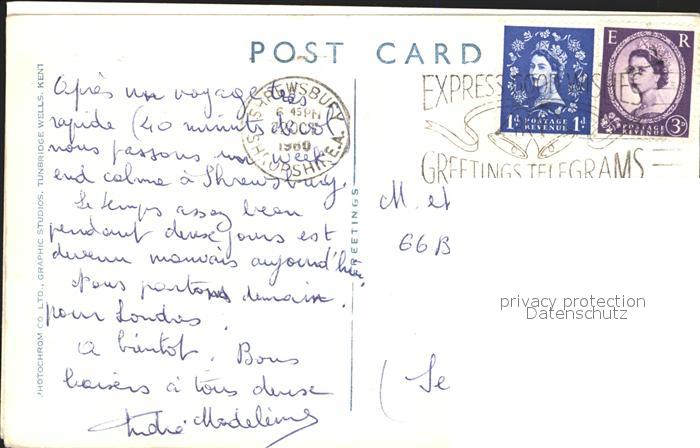 POST CARD
SHREWSBURY
6 45 PM
OC
1960
SHROPSHIRE. A.
EXPRESS GOOD WISHES
GREETINGS TELEGRAMS
1D POSTAGE REVENUE 1D
E R
POSTAGE REVENUE 3D
PHOTOCHROM CO. LTD., GRAPHIC STUDIOS, TUNBRIDGE WELLS, KENT
GREETINGS
Après un voyage très
rapide (40 minutes
nous passons un week
end calme à Shrewsbury.
Le temps assez beau
pendant deux jours est
devenu mauvais aujourd'hui
Nous partons demain
pour Londres.
A bientôt. Bons
baisers à tous deux
André Madeleine
M. et
66 B
(Se
privacy protection
Datenschutz